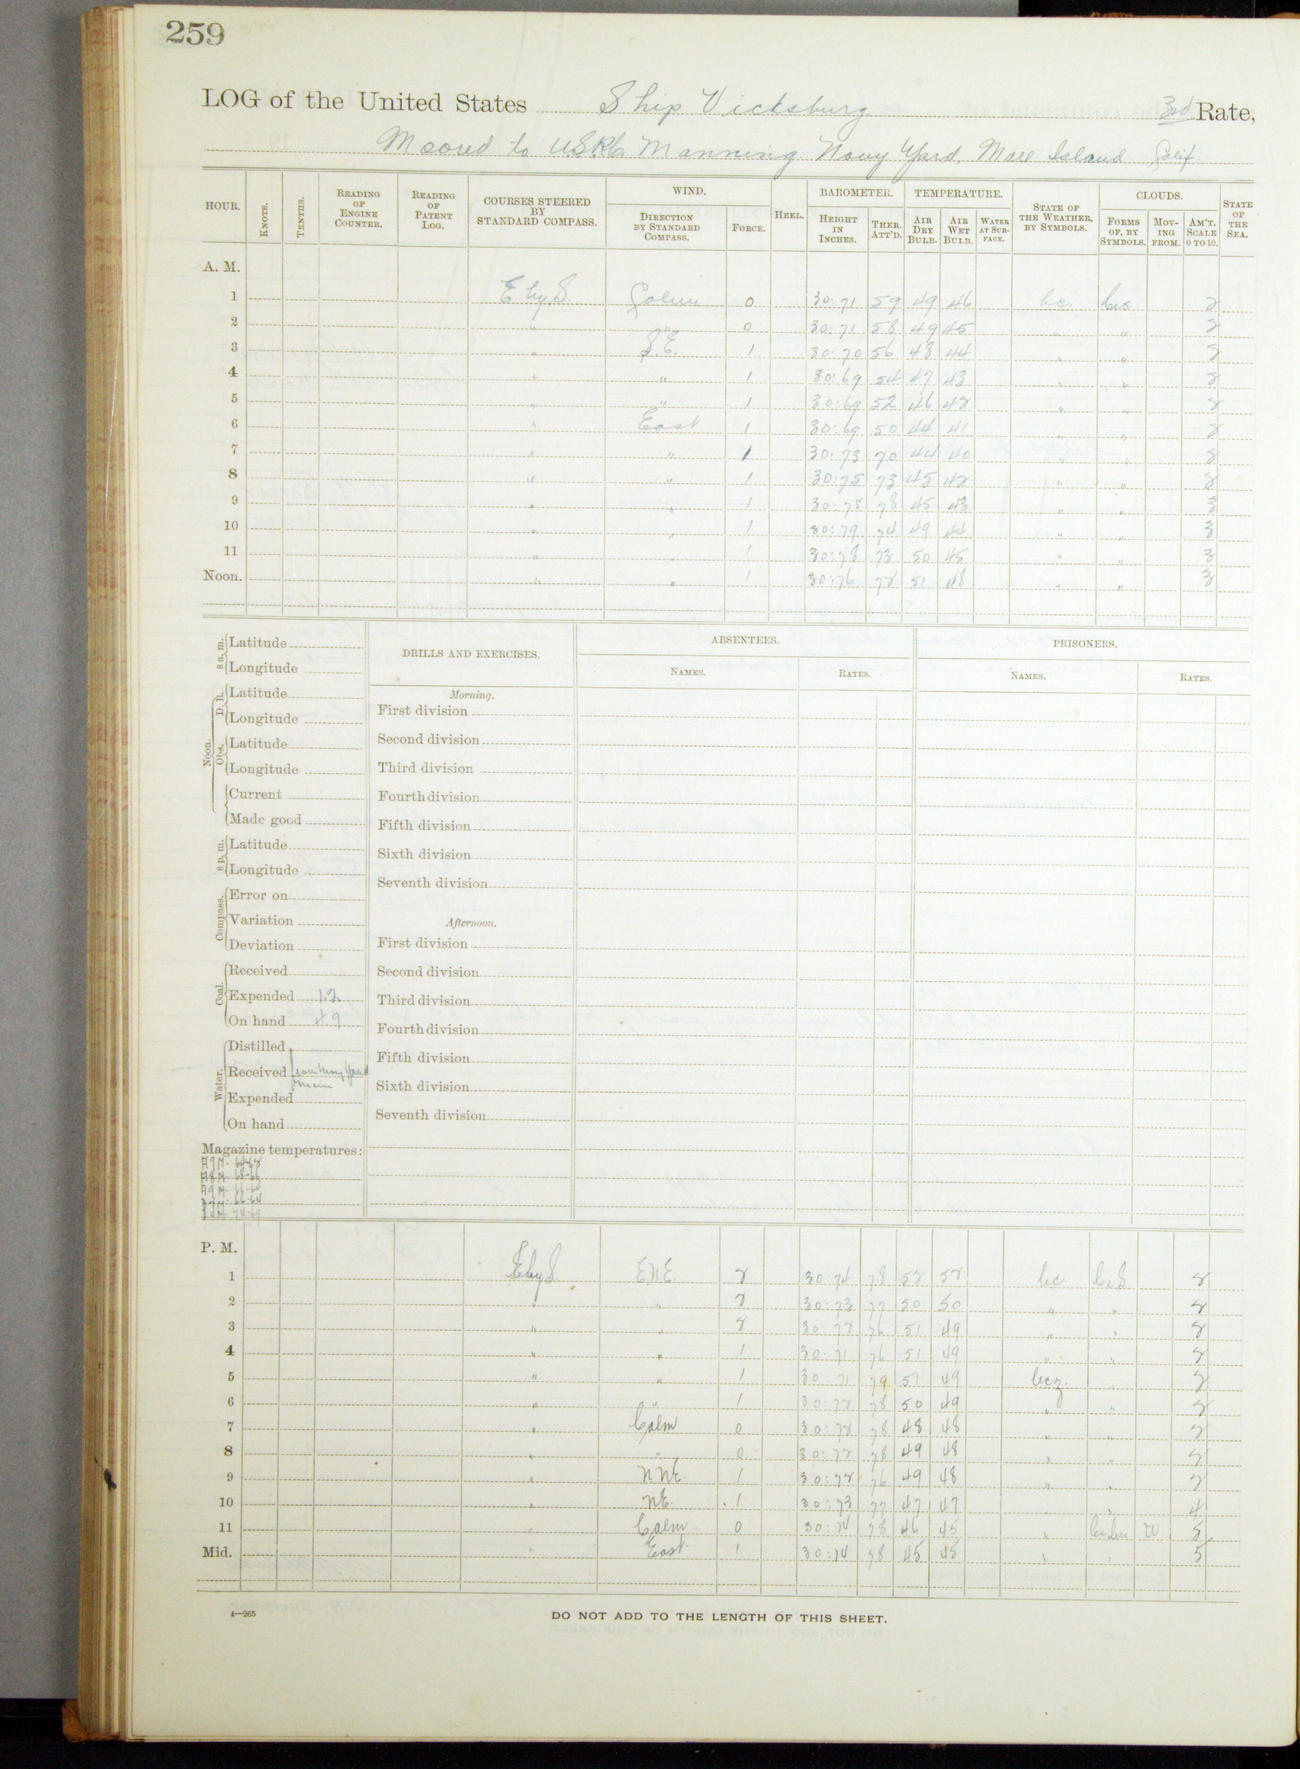 259
LOG of the United States Ship Vicksburg 3rd Rate,
Moored to U.S.R.C. Manning Navy Yard, Mare Island Calif.
HOUR. KNOTS. TENTHS. READING OF ENGINE COUNTER. READING OF PATENT LOG. COURSES STEERED BY STANDARD COMPASS. WIND. DIRECTION BY STANDARD COMPASS. FORCE. HEEL. BAROMETER. HEIGHT IN INCHES. THER. ATT'D. TEMPERATURE. AIR DRY BULB. AIR WET BULB. WATER AT SURFACE. STATE OF THE WEATHER, BY SYMBOLS. CLOUDS. FORMS OF, BY SYMBOLS. MOVING FROM. AM'T. SCALE 0 TO 10. STATE OF THE SEA.
A. M.
1 E by S Calm 0 30:71 59 49 46 bc. 2
2 " " 0 30:71 58 49 45 " " 2
3 " S.E. 1 30:70 56 48 44 " " 2
4 " " 1 30:69 54 47 43 " " 2
5 " " 1 30:69 52 46 42 " " 2
6 " East 1 30:69 50 44 41 " " 2
7 " " 1 30:73 70 44 40 " " 2
8 " " 1 30:75 73 45 42 " " 2
9 " " 1 30:78 45 43 " " 3
10 " " 1 30:79 74 49 44 " " 3
11 " " 1 30:78 73 50 45 " " 3
Noon. " " 1 30:76 72 51 48 " " 3
8 a. m. Latitude
Longitude
Noon. D. R. Latitude
Longitude
Obs. Latitude
Longitude
Current
Made good
8 p. m. Latitude
Longitude
Compass. Error on
Variation
Deviation
Coal. Received
Expended 1.2
On hand 49
Water. Distilled
Received from Navy Yard main
Expended
On hand
Magazine temperatures:
DRILLS AND EXERCISES.
Morning.
First division
Second division
Third division
Fourth division
Fifth division
Sixth division
Seventh division
Afternoon.
First division
Second division
Third division
Fourth division
Fifth division
Sixth division
Seventh division
ABSENTEES.
NAMES. RATES.
PRISONERS.
NAMES. RATES.
P. M.
1 E by S ENE 2 30:74 78 52 52 bc. 2
2 " " 2 30:73 77 50 50 " " 2
3 " " 2 30:72 76 51 49 " " 2
4 " " 1 30:71 76 51 49 " " 2
5 " " 1 30:71 79 51 49 bcz. " 2
6 " " 1 30:72 78 50 49 " " 2
7 " Calm 0 30:72 78 48 48 " " 2
8 " " 0 30:72 78 49 48 " " 2
9 " NNE 1 30:72 76 49 48 " " 2
10 " NE. 1 30:73 77 47 47 " " 4
11 " Calm 0 30:74 78 46 45 " W 5
Mid. " East 1 30:74 78 45 45 " " 5
4—265
DO NOT ADD TO THE LENGTH OF THIS SHEET.